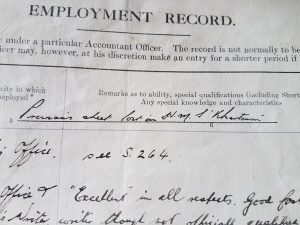 EMPLOYMENT RECORD.
e under a particular Accountant Officer. The record is not normally to be
icer may, however, at his discretion make an entry for a shorter period if
city in which
employed *
Remarks as to ability, special qualifications (including Short
Any special knowledge and characteristics
5
6
Previous sheet lost in H.M.S "Khartoum"
Office.
see S. 264.
Office &
"Excellent" in all respects. Good
Writer
writer though not officially